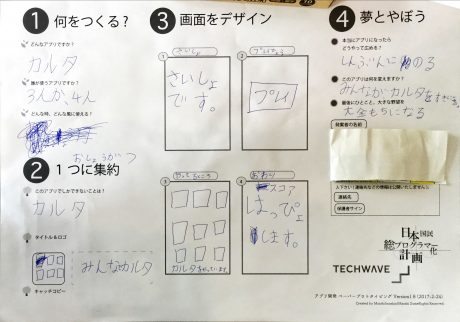 1 何をつくる？
どんなアプリですか？
カルタ
誰が使うアプリですか？
3人か、4人
どんな時、どんな風に使える？
おしょうがつ
2 1つに集約
このアプリでしかできないことは？
カルタ
タイトル&ロゴ
みんなカルタ
キャッチコピー
3 画面をデザイン
1 さいしょ
さいしょ
です。
2 プレイちゅう
プレイ
3
カルタをやっています。
4 おわり
スコア
はっぴょ
します。
4 夢とやぼう
本当にアプリになったら
どうやって広める？
しんぶんにのる
このアプリは何を変えますか？
みんながカルタを
最後にひとこと、大きな野望を
大金もちになる
発案者の名前
連絡先
保護者サイン
日本国民
総プログラマー化
計画
TECHWAVE
アプリ開発 ペーパープロトタイピング Version1.8 (2017-2-24)